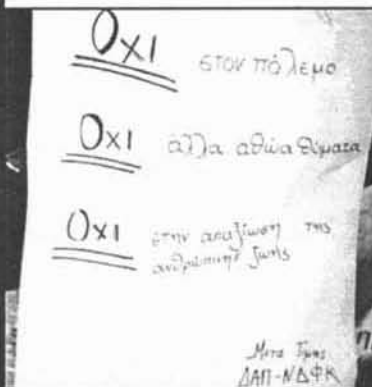 Οχι στον πόλεμο
Οχι άλλα αθώα θύματα
Οχι στην απαξίωση της
ανθρώπινης ζωής
Μετά Τιμής
ΔΑΠ-ΝΔΦΚ